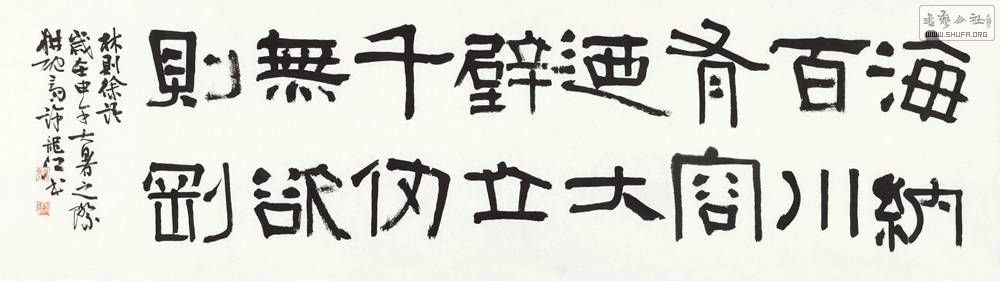 海納
百川
有容
迺大
壁立
千仞
無欲
則剛
林則徐語
歲在甲午大暑之際
許龍
書藝公社
WWW.SHUFA.ORG